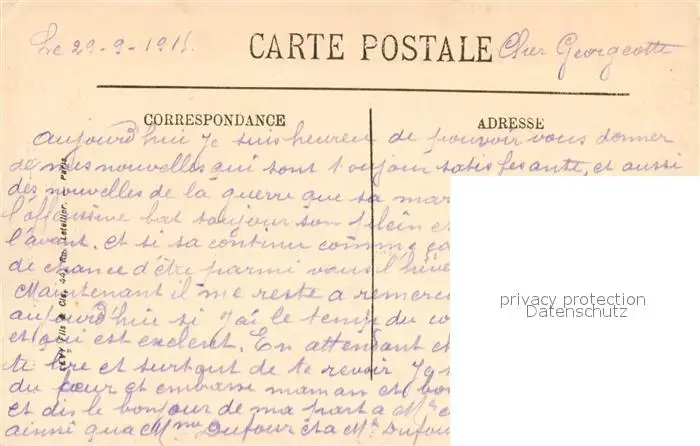 Le 29-9-1915. CARTE POSTALE Cher Georgeotte
CORRESPONDANCE ADRESSE
Aujourd'hui Je suis heureu de pouvoir vous donner
de mes nouvelles qui sont toujour satisfesante, et aussi
des nouvelles de la guerre que sa mar
l'offassive bat toujour son plein et
l'avant. et si sa continu comme ça
de chance d'être parmi vous l'hive
Maintenant il me reste a remerci
aujourd'hui si j'ai le temp du co
et qui est exelent. En attendant
te lire et surtout de te revoir
du cœur et embrasse maman et bon
et dis le bonjour de ma part a Mr
ainsi qua Mme Dufour et a Mr Dufour
LEVY Fils & Cie, 44, Rue Letellier. Paris
privacy protection
Datenschutz